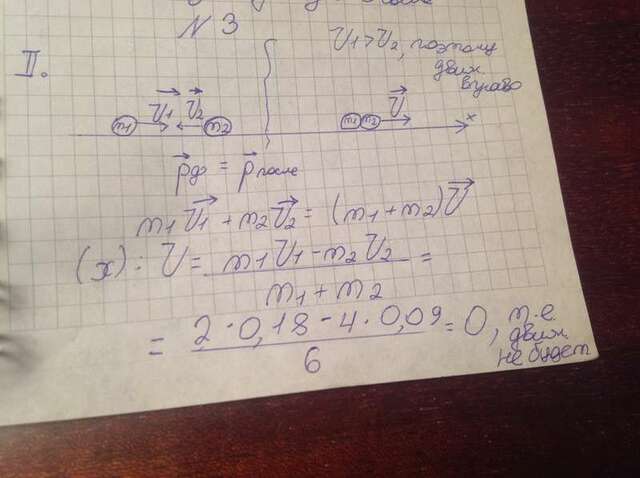 N 3
II.
V1>V2, поэтому
движ.
вправо
V1 V2 V
m1 m2 m1 m2 x
pдо = pпосле
m1V1 + m2V2 = (m1+m2)V
(x): V = m1V1-m2V2 =
m1+m2
= 2·0,18-4·0,09 = 0, т.е.
движ.
не будет
6